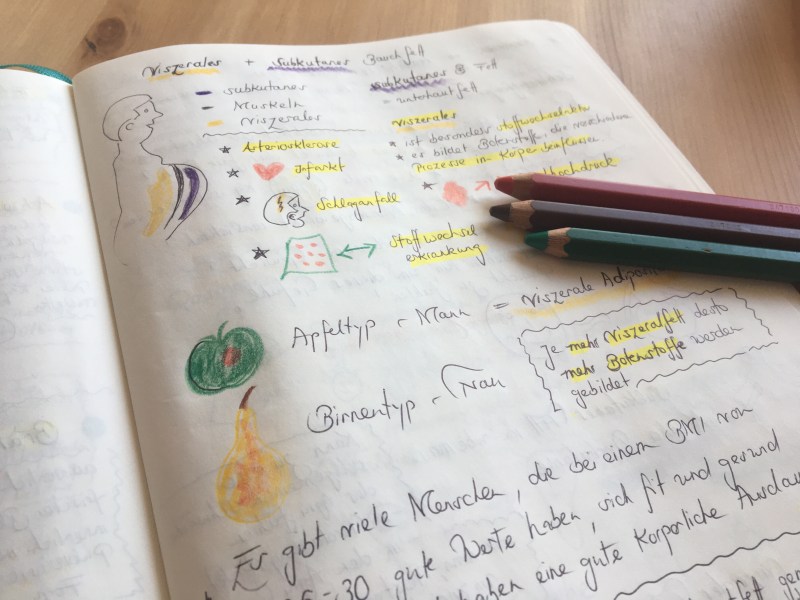 Viszerales + Subkutanes Bauchfett
subkutanes
Muskeln
Viszerales
subkutanes Fett
= unterhautfett
Viszerales
* ist besonders stoffwechselaktiv
* es bildet Botenstoffe, die verschiedene
Prozesse im Körper beeinflussen
* Arteriosklerose
* Infarkt
* Schlaganfall
* Stoffwechsel
erkrankung
* hochdruck
Apfeltyp - Mann = Viszerale
Birnentyp - Frau
Je mehr Viszeralfett desto
mehr Botenstoffe werden
gebildet
Es gibt viele Menschen, die bei einem BMI von
-30 gute Werte haben, sich fit und gesund
haben eine gute Körperliche